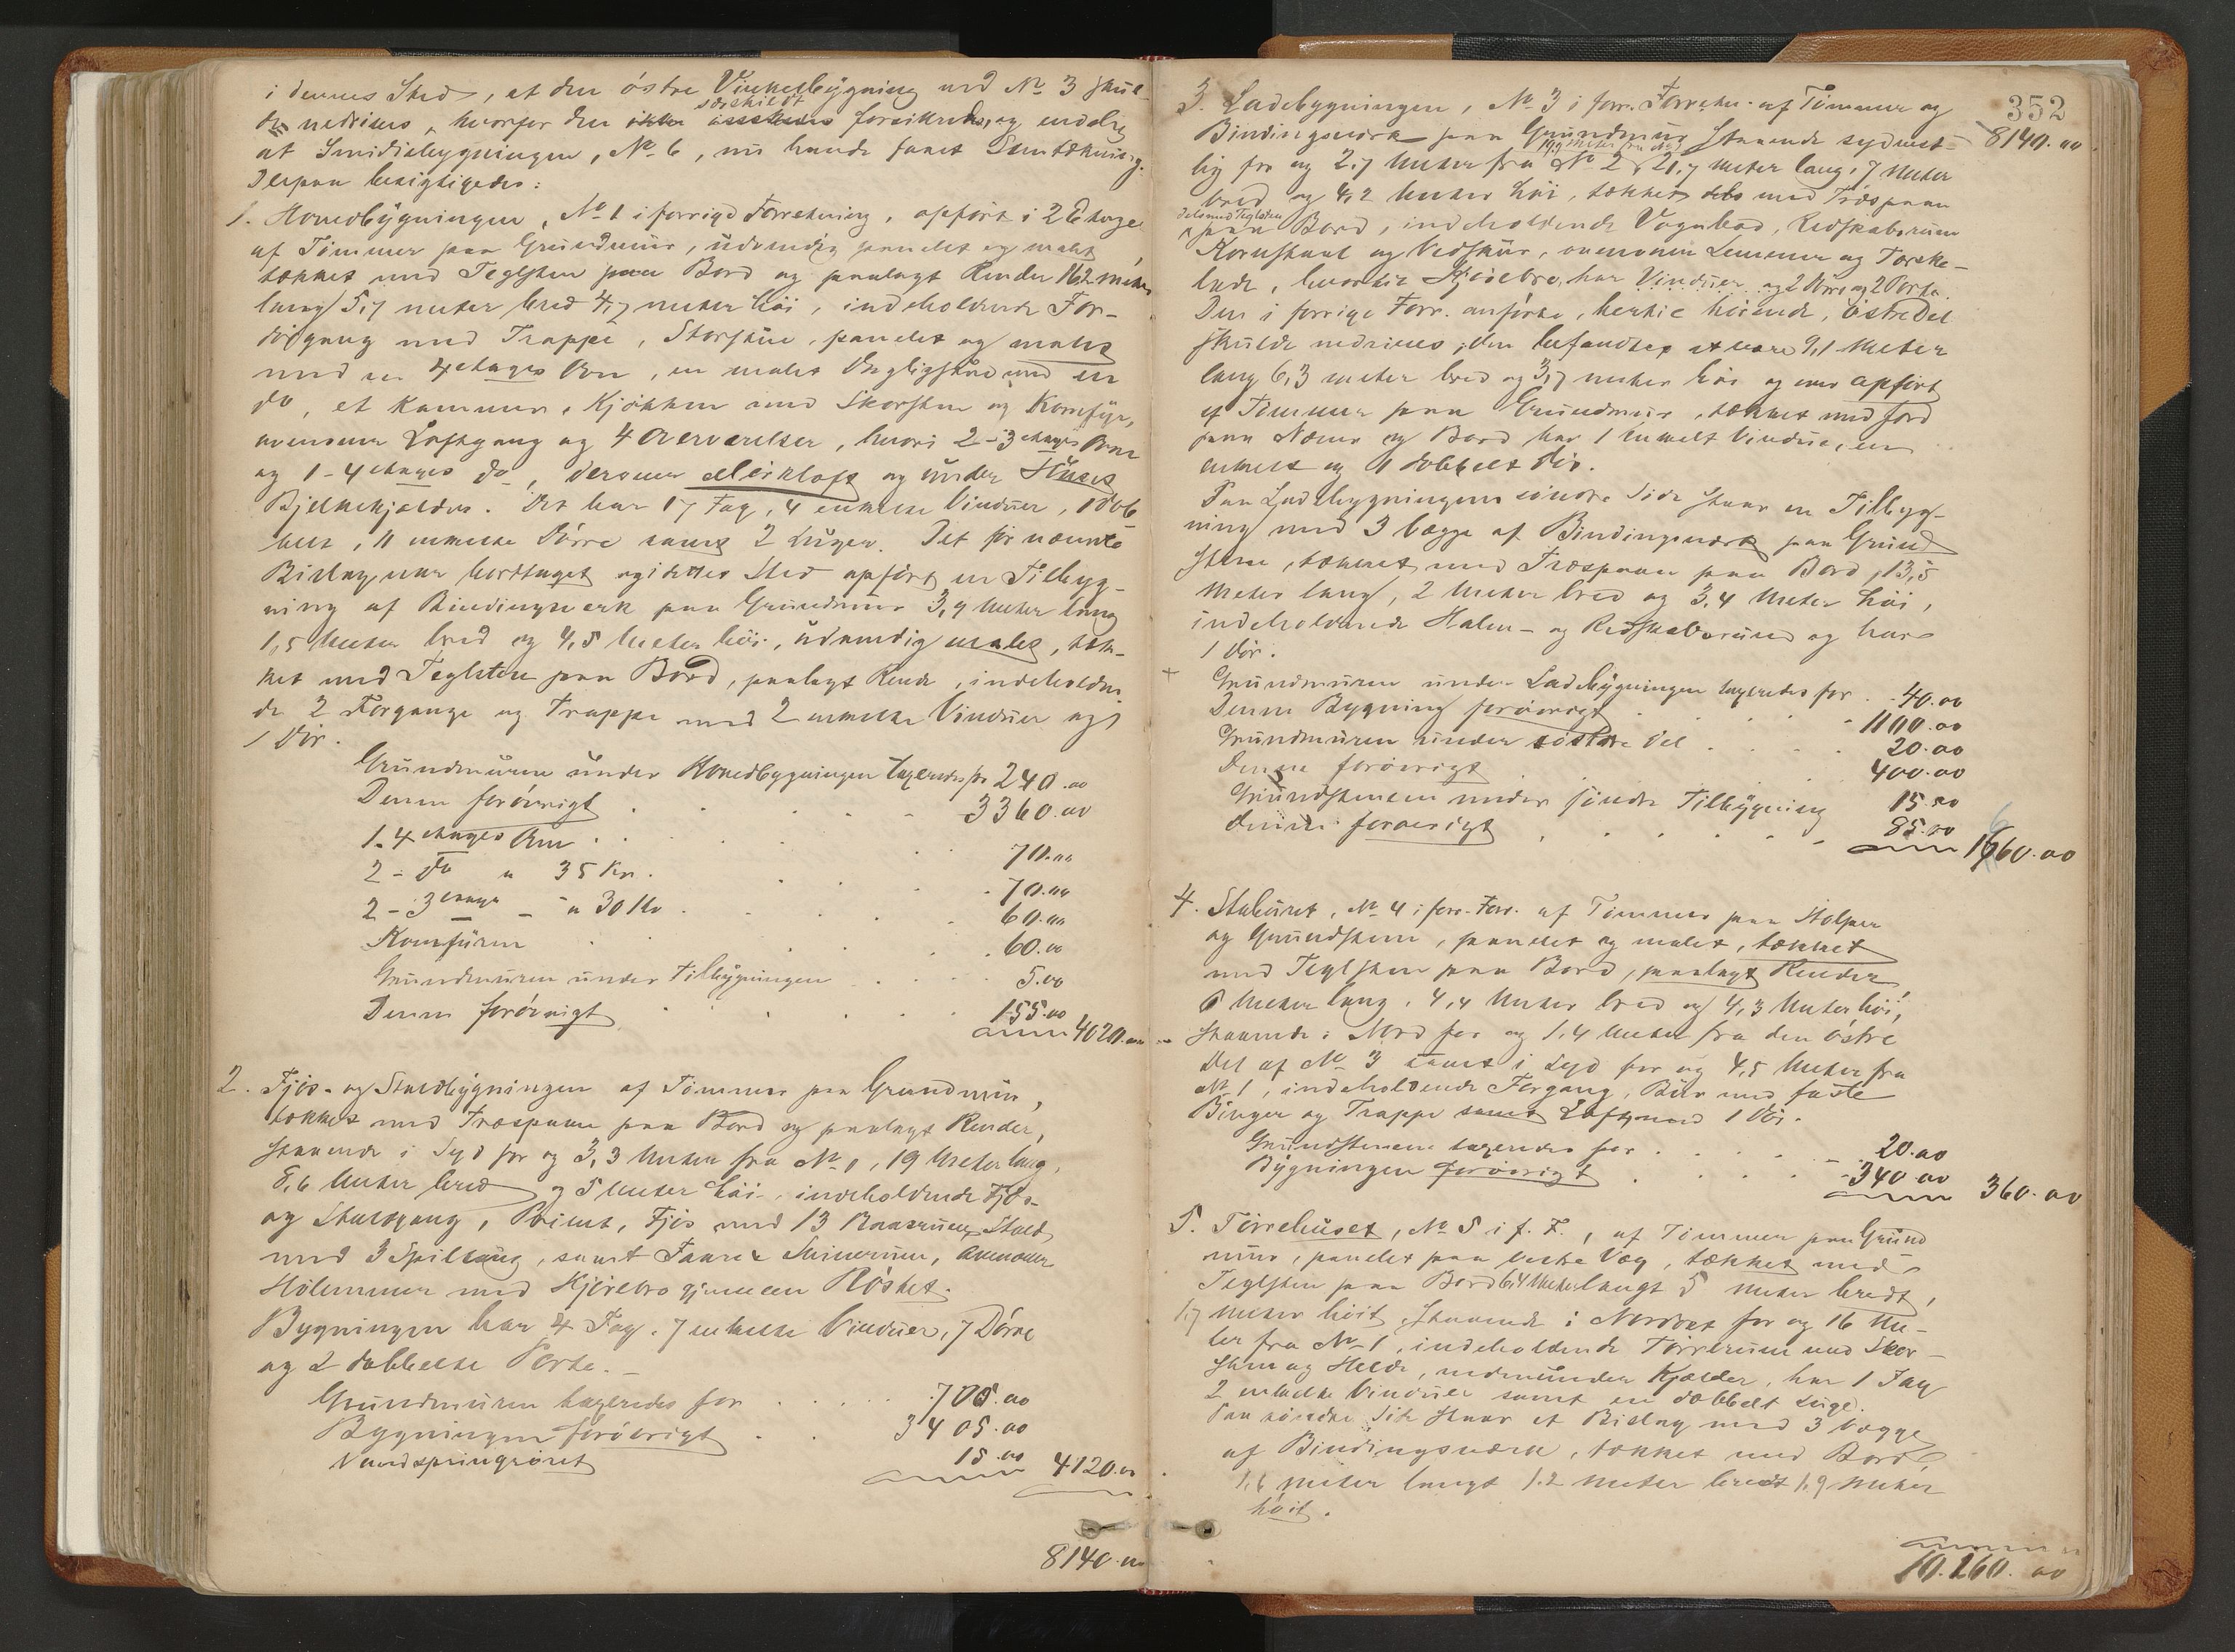 i dennes Sted, at den östre Vinkelbygning ved No 3 skul-
de nedrives, hvorfor den særskildt forsikredes, og endelig
at Smidiebygningen, No 6, nu havde faaet Stentækning.
Derpaa besigtigedes:
1. Hovedbygningen, No 1 i forrige Forretning, opført i 2 Etager
af Tömmer paa Grundmur, udvendig panelet og malet
tækket med Teglsten paa Bord og paalagt Render 16,2 meter
lang 5,7 meter bred 4,7 meter höi, indeholdende For-
stuegang med Trappe, Storstue, panelet og malet
med en 4 etages Ovn, en malet Dagligstue med en
do, et Kammer, Kjökken med Skorsten og Komfyr,
ovenover Loftgang og 4 Værelser, hvori 2-3 etages Ovne
og 1-4 etages do, derover Mörkloft og under Huset
Bjelkekjelder. Det har 17 Fag, 4 enkelte Vinduer, 1 dob-
belt, 11 enkelte Dörre samt 2 Luger. Det för nævnte
Bislag var borttaget og i dettes Sted opfört en Tilbyg-
ning af Bindingsverk paa Grundmur 3,9 Meter lang
1,5 Meter bred og 4,5 Meter höi, udvendig malet, tæk-
ket med Teglsten paa Bord, paalagt Rende, indeholden-
de 2 Forgange og Trappe med 2 enkelte Vinduer og
1 Dör.
Grundmuren under Hovedbygningen taxeredes for 240.00
Denne forövrigt 3360.00
1-4 etages Ovn 70.00
2 - do a 35 Kr. 70.00
2 - 3 etages - a 30 Kr 60.00
Komfüren 60.00
Grundmuren under Tilbygningen 5.00
Denne forövrigt 155.00
4020.00
2. Fjös- og Staldbygningen af Tömmer paa Grundmur,
tækket med Træspaan paa Bord og paalagt Render,
staaende i Syd for og 3,3 Meter fra No 1, 19 Meter lang,
8,6 Meter bred og 5 Meter höi, indeholdende Fjös-
og Staldgang, Fjös med 13 Baasrum, Stald
med 3 Spiltaug, samt Faare & Svinerum, ovenover
Hölemmer med Kjörebro gjennem Röstet.
Bygningen har 4 Fag, 7 enkelte Vinduer, 7 Dörre
og 2 dobbelte Porte.
Grundmuren taxeredes for 700.00
Bygningen forövrigt 3405.00
Vandspringröret 15.00 4120.00
8140.00
352
3. Ladebygningen, No 3 i forr. Forretn. af Tömmer og
8140.00
Bindingsverk paa Grundmur staaende sydvest-
lig for og 2,7 Meter fra No 2, 21,7 Meter lang, 7 Meter
bred og 4,2 Meter höi, tækket dels med Træspaan
dels med Teglsten
paa Bord, indeholdende Vognbod, Redskabsrum
Kornstaal og Vedskur, ovenover Lemmer og Törke-
lade, hvortil Kjörebro, har Vinduer og 2 Dörre og 2 Porte.
Den i forrige Forr. anförte, hertil hörende, östre Del
skulde nedrives; den befandtes at være 9,1 Meter
lang 6,3 meter bred og 3,7 meter höi og var opfört
af Tömmer paa Grundmur, tækket med Jord
paa Næver og Bord har 1 enkelt Vindue, en
enkelt og 1 dobbelt Dör.
Paa Ladebygningens söndre Side staar en Tilbyg-
ning med 3 Vægge af Bindingsverk paa Grund
stene, tækket med Træspaan paa Bord, 13,5
Meter lang, 2 Meter bred og 3,4 Meter höi,
indeholdende Halm- og Redskabsrum og har
1 Dör.
Grundmuren under Ladebygningen taxeredes for 40.00
Denne Bygning forövrigt 1100.00
Grundmuren under östre Del 20.00
Denne forövrigt 400.00
Grundstenene under söndre Tilbygning 15.00
Denne forövrigt 85.00
1660.00
4. Staburet, No 4 i forr. Forr. af Tömmer paa Stolper
og Grundstene, panelet og malet, tækket
med Teglsten paa Bord, paalagt Render,
6 Meter lang, 4,4 Meter bred og 4,3 Meter höi,
staaende i Nord for og 1,4 Meter fra den östre
Del af No 3 samt i Syd for og 4,5 Meter fra
No 1, indeholdende Forgang, Bur med faste
Binger og Trappe samt Loft, med 1 Dör.
Grundstenene taxeredes for 20.00
Bygningen forövrigt 340.00 360.00
5. Törrehuset, No 5 i f. F., af Tömmer paa Grund
mur, panelet paa vestre Væg, tækket med
Teglsten paa Bord 6,4 Meter langt 5 Meter bredt,
1,7 Meter höit, staaende i Nordost for og 16 Me-
ter fra No 1, indeholdende Törrerum med Skor-
sten og Helde, nedenunder Kjælder, har 1 Fag
2 enkelte Vinduer samt en dobbelt Luge.
Paa söndre Side staar et Bislag med 3 Vægge
af Bindingsverk, tækket med Bord
1,6 Meter langt 1,2 Meter bredt 1,9 Meter
höit.
10.160.00